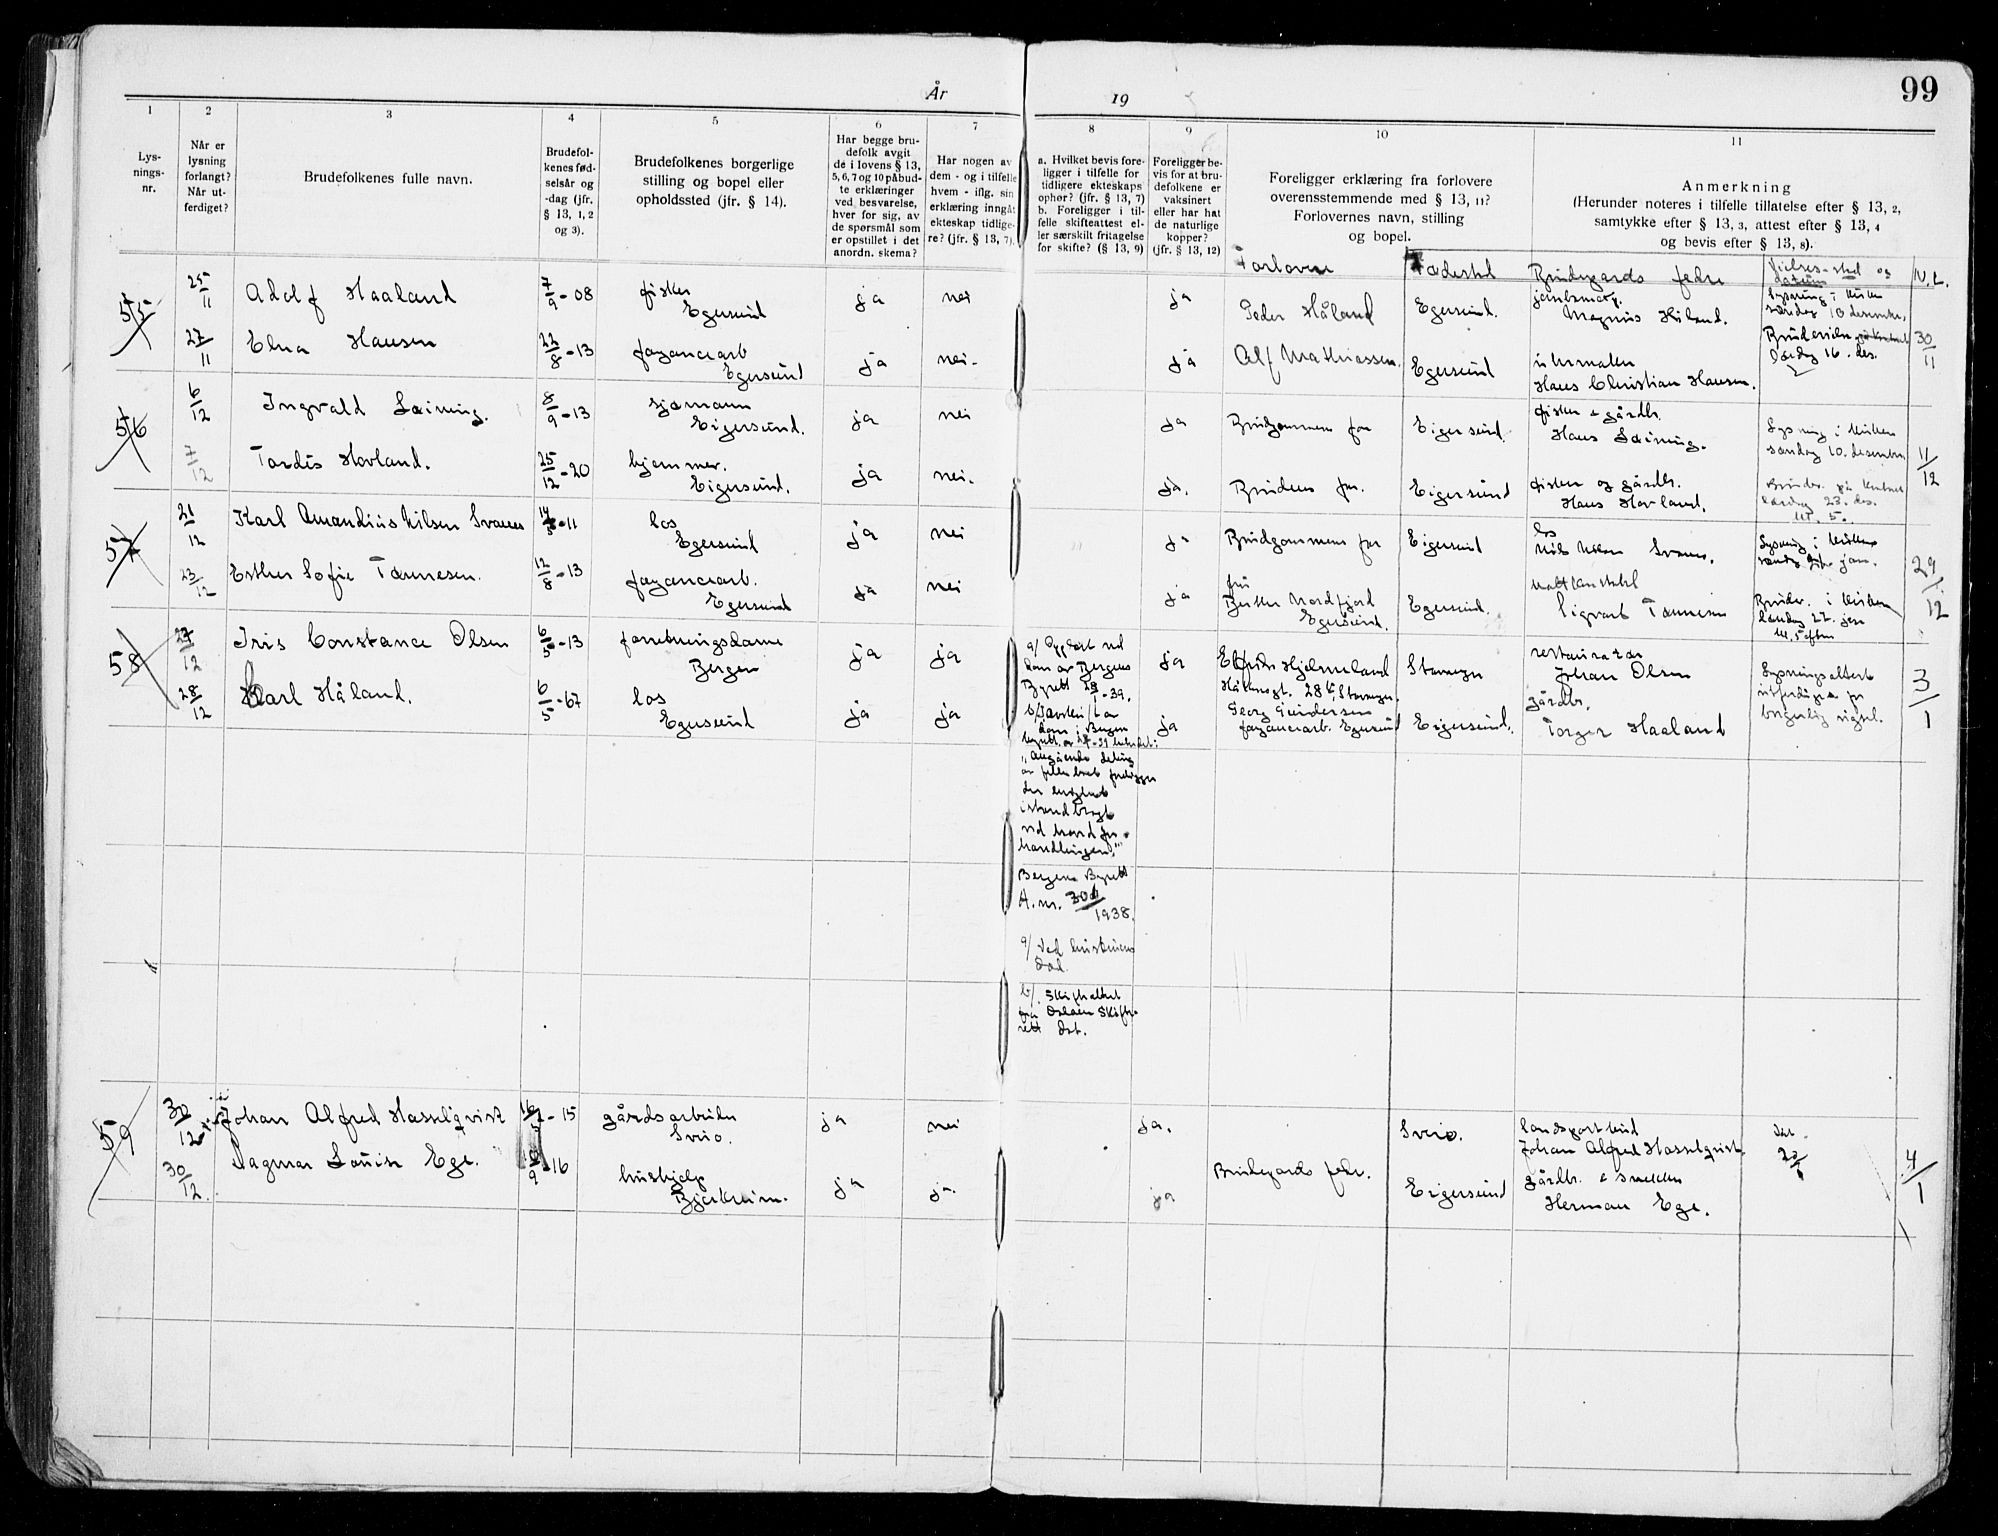 99
År 19
1
2
3
4
5
6
7
8
9
10
11
Lys-
nings-
nr.
Når er
lysning
forlangt?
Når ut-
ferdiget?
Brudefolkenes fulle navn.
Brudefol-
kenes fød-
selsår og
-dag (jfr.
§ 13, 1, 2
og 3).
Brudefolkenes borgerlige
stilling og bopel eller
opholdssted (jfr. § 14).
Har begge bru-
defolk avgit
de i lovens § 13,
5, 6, 7 og 10 påbud-
te erklæringer
ved besvarelse,
hver for sig, av
de spørsmål som
er opstillet i det
anordn. skema?
Har nogen av
dem - og i tilfelle
hvem - iflg. sin
erklæring inngåt
ekteskap tidlige-
re? (jfr. § 13, 7).
a. Hvilket bevis fore-
ligger i tilfelle for
tidligere ekteskaps
ophør? (jfr. § 13, 7)
b. Foreligger i til-
felle skifteattest el-
ler særskilt fritagelse
for skifte? (§ 13, 9)
Foreligger be-
vis for at bru-
defolkene er
vaksinert
eller har hat
de naturlige
kopper?
(jfr. § 13, 12)
Foreligger erklæring fra forlovere
overensstemmende med § 13, 11?
Forlovernes navn, stilling
og bopel.
Anmerkning
(Herunder noteres i tilfelle tillatelse efter § 13, 2,
samtykke efter § 13, 3, attest efter § 13, 4
og bevis efter § 13, 8).
Forlovere Fødested Brudepards fedre Vielses-sted og datum N.L.
55 25/11 Adolf Haaland 7/9-08 fisker Egersund ja nei ja Peder Håland Egersund. Magnus Håland. Lysning i kirken søndag 10 desember.
27/11 Elna Hansen 22/8-13 fayancearb Egersund ja nei. ja Alf Mathiassen Egersund urmaker Hans Christian Hansen. Brudevielse på kontoret lørdag 16. des. 30/11
56 6/12 Ingvald Leining. 8/9-13 sjømann Eigersund. ja nei ja Brudgommens far Eigersund. fisker & gårdbr. Hans Leining. Lysning i kirken søndag 10. desember
7/12 Tordis Hovland. 25/12-20 hjemmev. Eigersund. ja nei. ja. Brudens far. Eigersund fisker og gårdbr. Hans Hovland. Brudev. på kontoret lørdag 23. des. kl. 5. 11/12
57 21/12 Karl Amandus Nilsen Svanes -11 los Egersund ja nei ja Brudgommens far Eigersund los Nils Nilsen Svanes. Lysning i kirken søndag jan.
23/12 Esther Sofie Tønnesen. 12/8-13 fayancearb. Egersund ja nei ja fru Nordfjord Egersund. Egersund. Sigvart Tønnesen Brudev. i kirken lørdag 27. jan kl. 5 eftm 29/12
58 27/12 Iris Constance Olsen 6/5-13 forretningsdame Bergen ja ja a/ Oppløst ved dom av Bergens Byrett -39. ja Elfrida Hjelmeland Håkonsgt. 28 Stavanger Stavanger restauratør Johan Olsen Lysningsattest utferdiges for borgerlig vigsel.
28/12 Karl Håland. 6/5-67 los Egersund ja ja ja Georg Gundersen fayancearb. Egersund Eigersund. gårdbr. Torger Haaland 3/1
"Angående deling
av fellesboet foreligger
der
istandbragt
ved hovedfor-
handlingen."
Bergens Byrett
A. nr. /1938.
a/ Ved hustruens
død.
b/. Skifteattest
fra Dalane Skifte-
rett dat.
59 30/12 Johan Alfred Hasselqvist -15 gårdsarbeider Svio. ja nei ja. Svio. landspostbud Johan Alfred Hasselqvist.
30/12. Dagmar Louise Ege. /9-16 hushjelp Bjerkreim. ja ja. ja Brudepards fedr. Eigersund gårdbr. & smed Herman Ege. 4/1